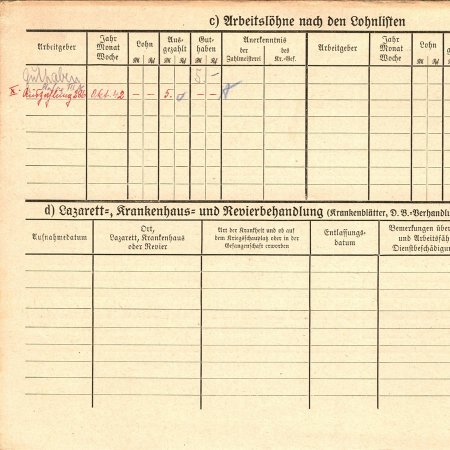 c) Arbeitslöhne nach den Lohnlisten
Arbeitgeber
Jahr
Monat
Woche
Lohn
Aus-
gezahlt
Gut-
haben
Anerkenntnis
der
Zahlmeisterei
des
Kr.-Gef.
Arbeitgeber
Jahr
Monat
Woche
Lohn
ge
Guthaben
5 -
Auszahlung Okt. 42 - - 5. - -
d) Lazarett-, Krankenhaus- und Revierbehandlung (Krankenblätter, D. B.-Verhandlu
Aufnahmedatum
Ort,
Lazarett, Krankenhaus
oder Revier
Art der Krankheit und ob auf
dem Kriegsschauplatz oder in der
Gefangenschaft erworben
Entlassungs-
datum
Bemerkungen über
und Arbeitsfäh
Dienstbeschädigu